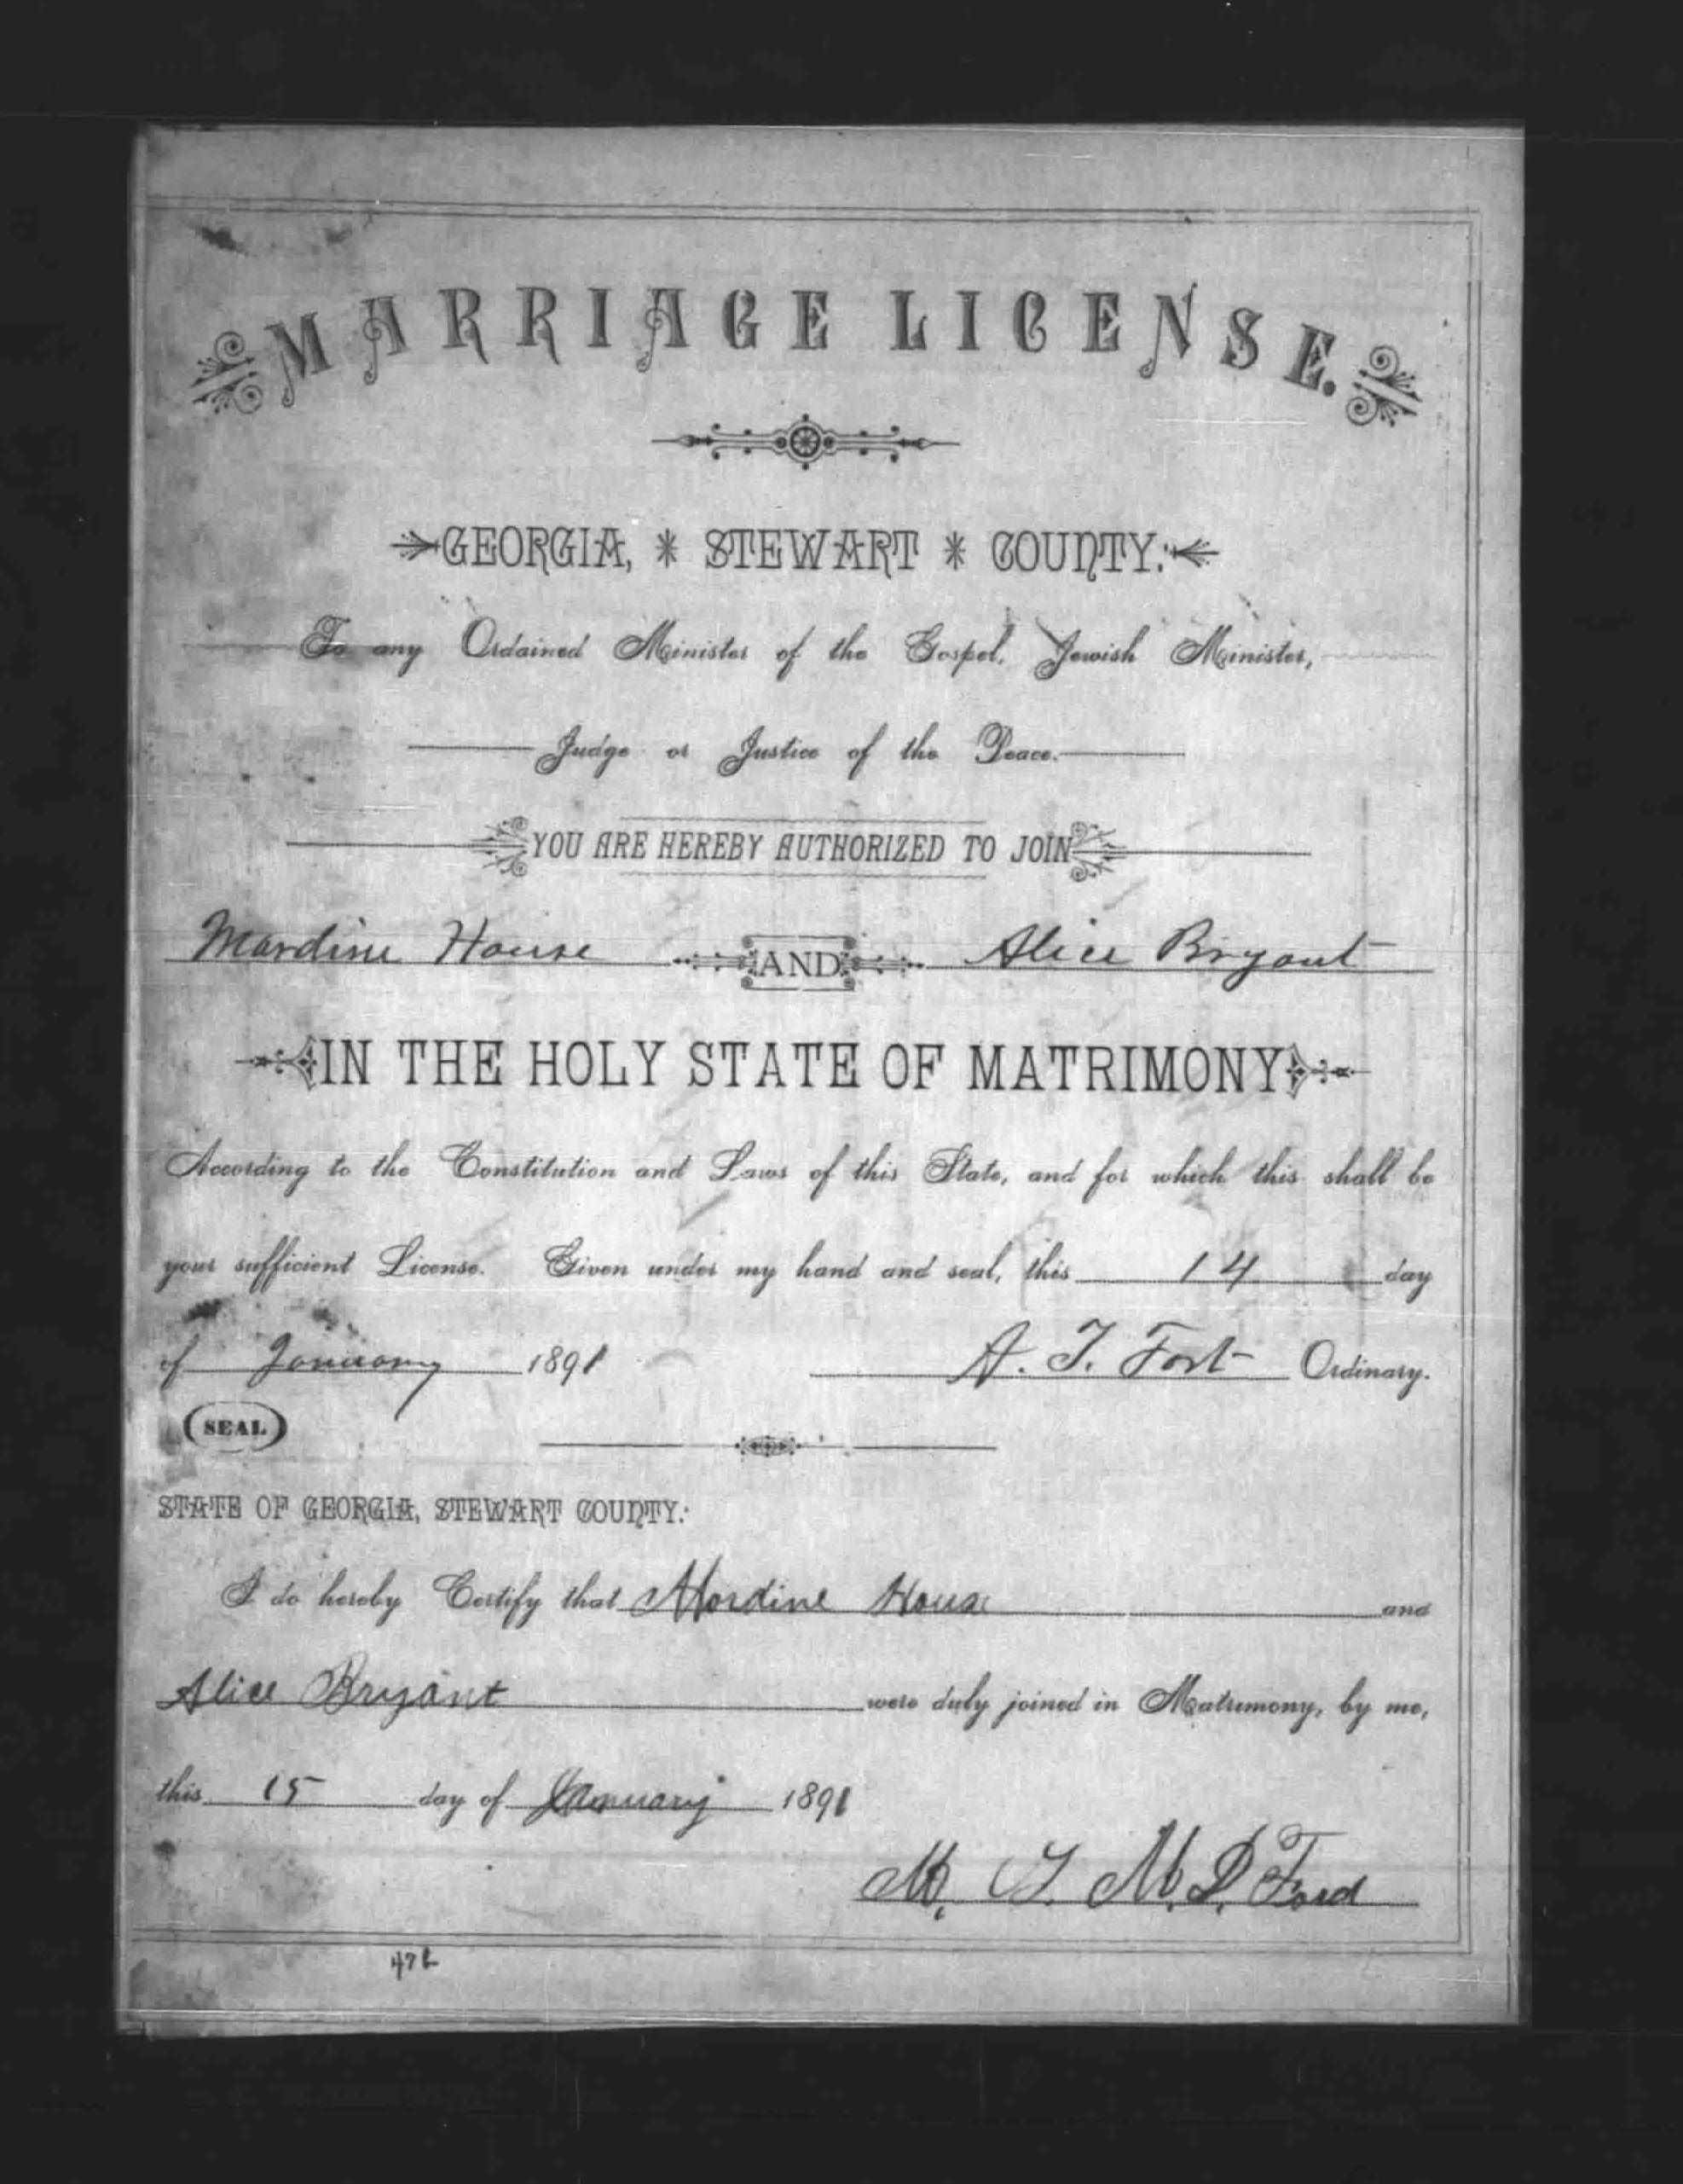 MARRIAGE LICENSE.
GEORGIA, * STEWART * COUNTY:
To any Ordained Minister of the Gospel, Jewish Minister,
Judge or Justice of the Peace.
YOU ARE HEREBY AUTHORIZED TO JOIN
Mardine House AND Alice Bryant
IN THE HOLY STATE OF MATRIMONY
According to the Constitution and Laws of this State, and for which this shall be
your sufficient License. Given under my hand and seal, this 14 day
of January 1891 A. T. Fort Ordinary.
SEAL
STATE OF GEORGIA, STEWART COUNTY:
I do hereby Certify that Mordine House and
Alice Bryant were duly joined in Matrimony, by me,
this 15 day of January 1891
M. Ford